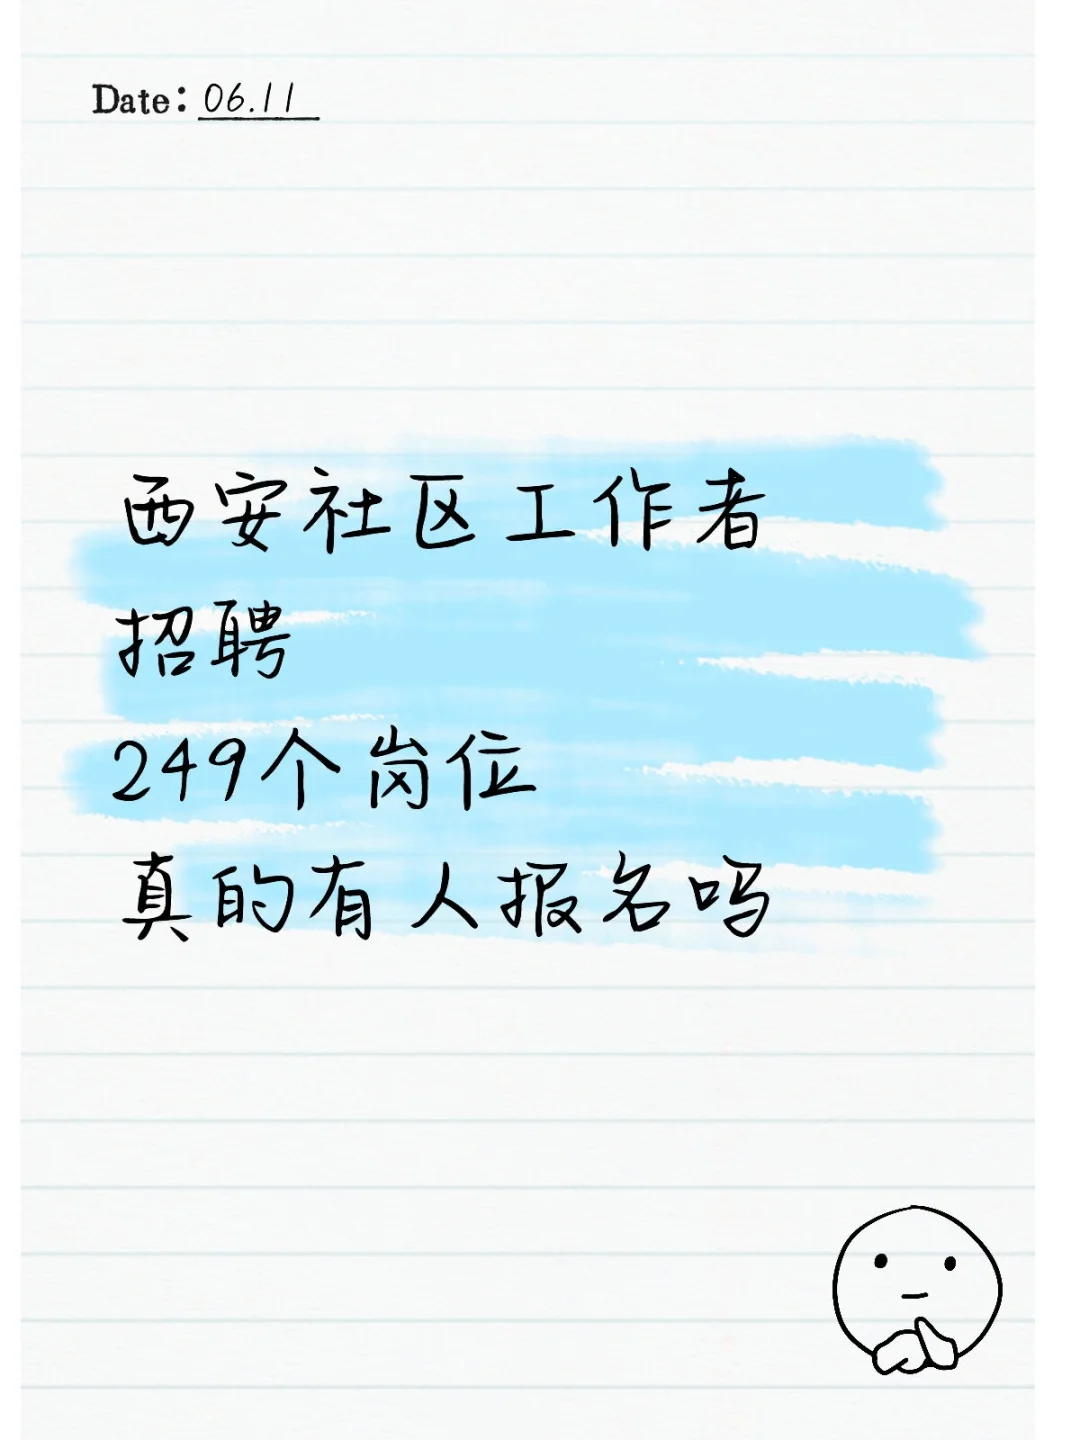 Date: 06.11
西安社区工作者
招聘
249个岗位
真的有人报名吗